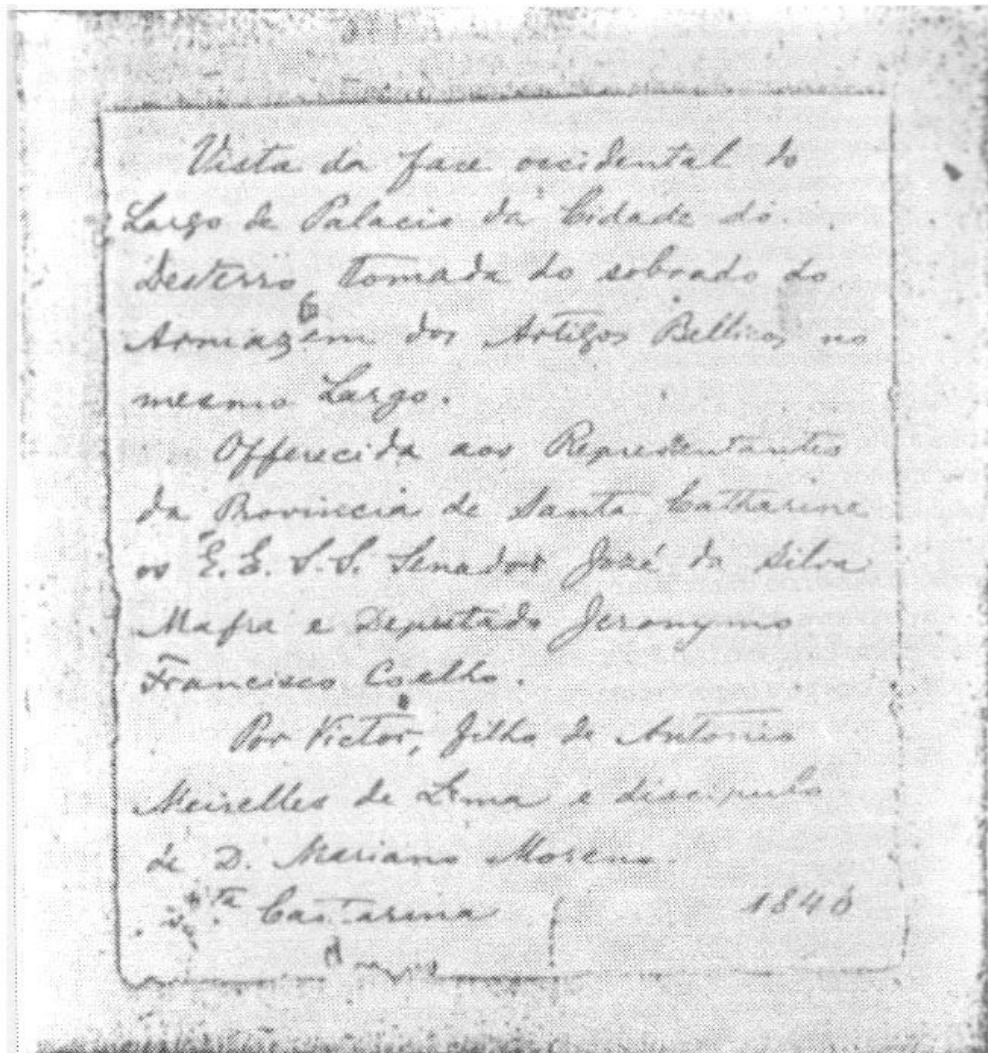 Vista da face occidental do
Largo de Palacio da Cidade do
Desterro, tomada do sobrado do
Armazem dos Artigos Bellicos no
mesmo Largo.
Offerecida aos Representantes
da Provincia de Santa Catharina
os E.E. S.S. Senador José da Silva
Mafra e Deputado Jeronymo
Francisco Coelho.
Por Victor, filho de Antonio
Meirelles de Lima e discipulo
de D. Mariano Moreno.
Catarina 1846